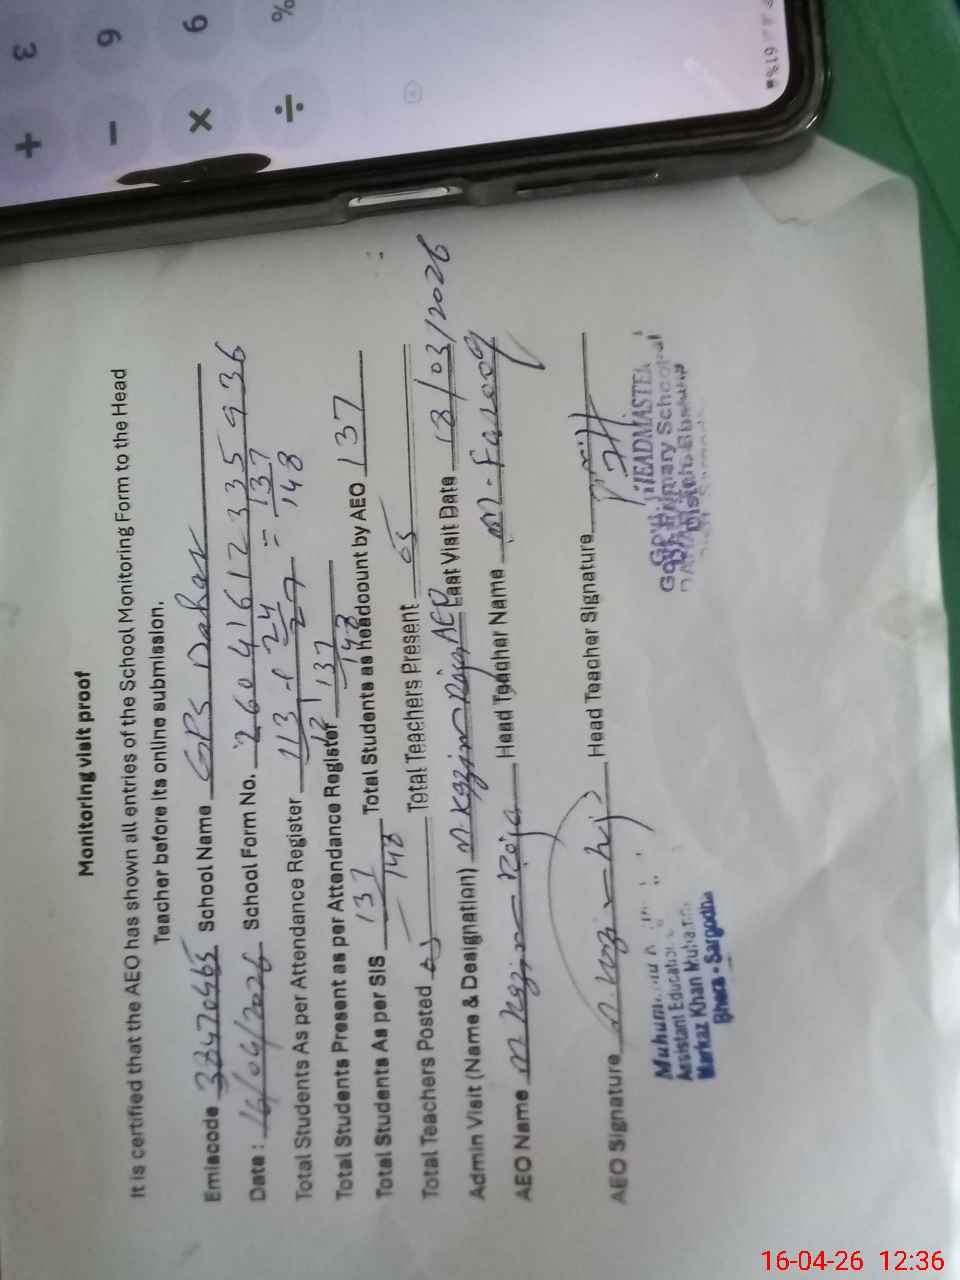 Monitoring visit proof
It is certified that the AEO has shown all entries of the School Monitoring Form to the Head
Teacher before its online submission.
Emiscode 38470465 School Name GPS Dahar
Date : 16/04/2026 School Form No. 2604161233 5936
Total Students As per Attendance Register 113 + 24 = 137
121 27 148
Total Students Present as per Attendance Register 137
148
Total Students As per SIS 137 Total Students as headcount by AEO 137
148
Total Teachers Posted 05 Total Teachers Present 05
Admin Visit (Name & Designation) M Kazim Raza AEO Last Visit Date 18/03/2026
AEO Name M Kazim Raza Head Teacher Name M. Farooq
AEO Signature Head Teacher Signature
HEADMASTER
Govt. Primary School
Assistant Education
Markaz Khan Muhammad
Bhera - Sargodha
3 6 9 %
+ - × ÷
61%
16-04-26 12:36